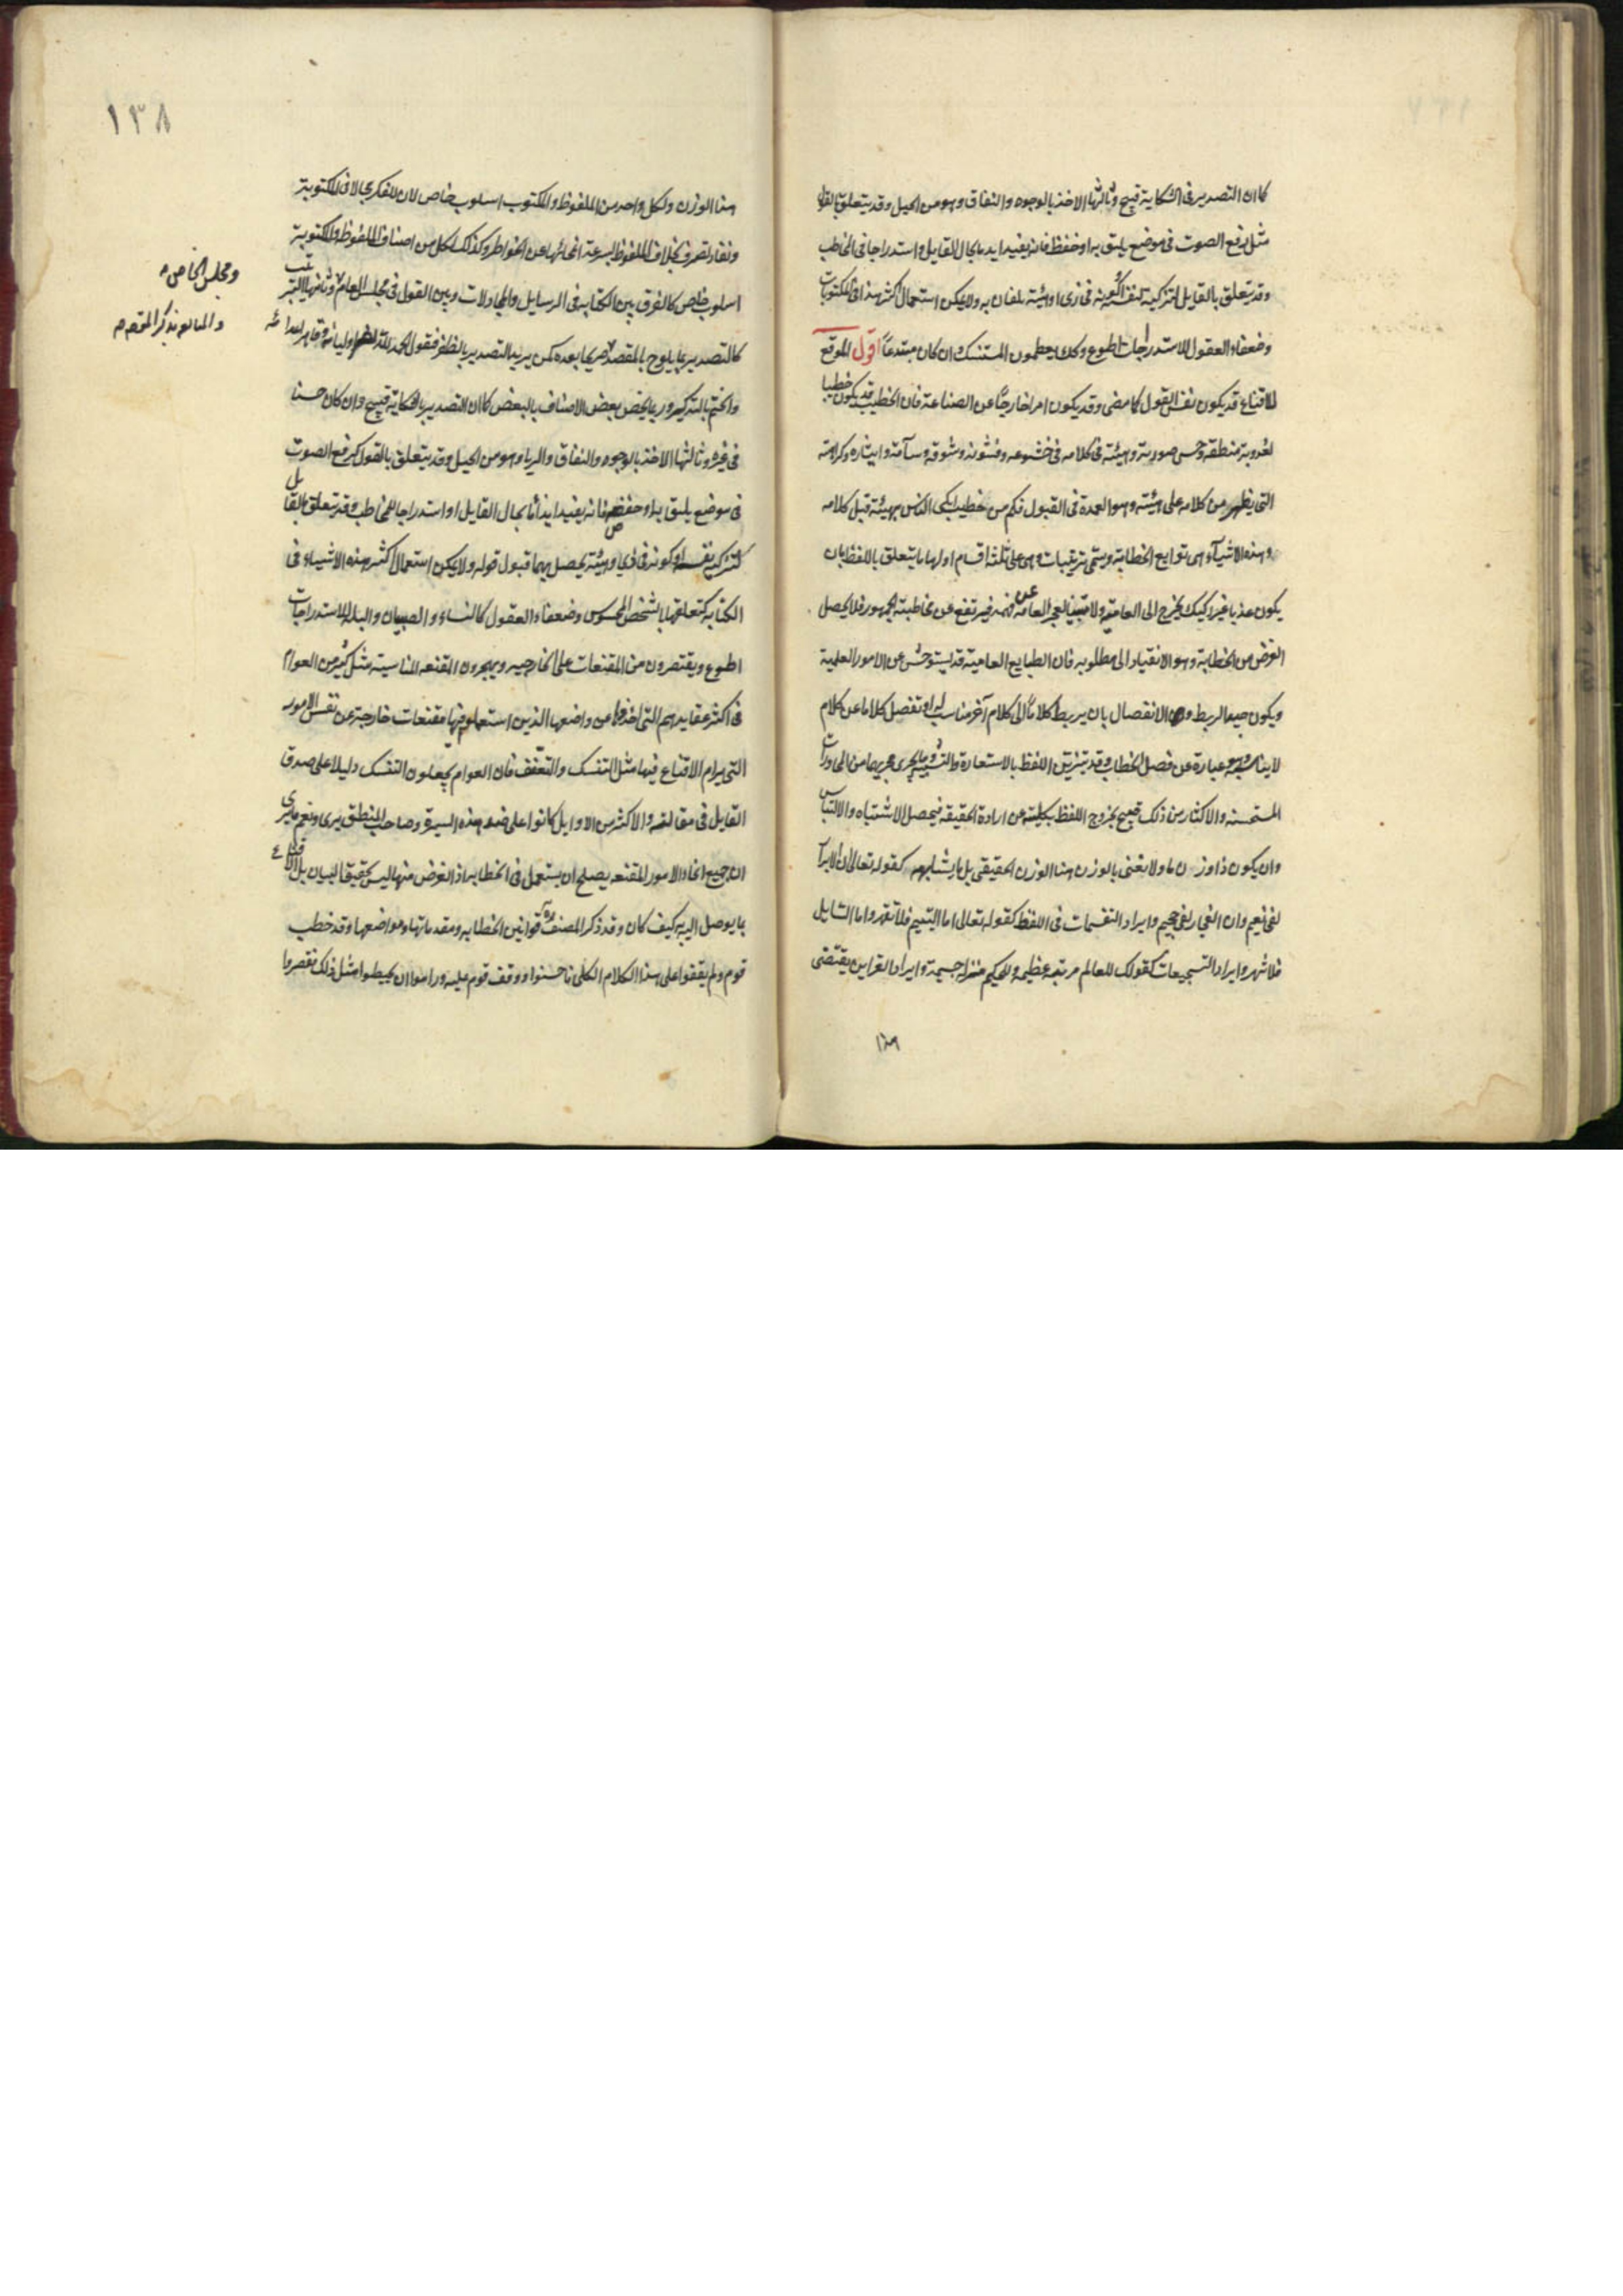 كما ان التصدير فى الشكاية قبيح وثالثها الاخذ بالوجوه والنفاق وهو من الحيل وقد يتعلق بالقول
مثل رفع الصوت فى موضع يليق به او خفضه فانه يفيد ايذانا بحال القايل واستدراجا فى المخاطب
وقد يتعلق بالقايل كتزكية نفسه او كونه فى زى او هيئة ولا يمكن استعمال اكثر هذا فى المكتوبات
وضعفاء العقول للاستدراجات اطوع وكذلك يعظمون المتنسك وان كان مبتدعا اقول الموقع
للاقناع قد يكون نفس القول كما مضى وقد يكون امرا خارجيا عن الصناعة فان الخطيب قد يكون خطيبا
لعذوبة منطقه وحسن صورته وهيئته فى كلامه فى خشوعه وخشونته وشوقه وسآمته وايثاره وكراهته
التى يظهر من كلامه على هيئته وهو العمدة فى القبول فكم من خطيب ابكى الناس بهيئته قبل كلامه
وهذه الاشياء هى توابع الخطابة ويسمى تزيينات وهى على ثلثة اقسام اولها ما يتعلق باللفظ بان
يكون عذبا غير ركيك يخرج الى العامية ولا متينا يعجز العامة عن فهمه فيرتفع عن مخاطبة الجمهور فلا يحصل
الغرض من الخطابة وهو الانقياد الى مطلوبه فان الطبايع العامية قد يستوحش عن الامور العلمية
ويكون جيد الربط والانفصال بان يربط كلاما الى كلام آخر مناسب له او تفصل كلاما عن كلام
لا يناسبه وهو عبارة عن فصل الخطاب وقد يتزين اللفظ بالاستعارة والتشبيه وما يجرى مجريهما من المحاورات
المستحسنه والاكثار من ذلك قبيح بخروج اللفظ بكليته عن ارادة الحقيقة فيحصل الاشتباه والالتباس
وان يكون ذا وزن ما ولا نعنى بالوزن هنا الوزن الحقيقى بل ما يشابهه كقوله تعالى ان الابرار
لفى نعيم وان الفجار لفى جحيم وايراد التقسيمات فى اللفظ كقوله تعالى اما اليتيم فلا تقهر واما السايل
فلا تنهر وايراد التسجيعات كقولك للعالم مرتبة عظيمه وللحكيم منزلة جسيمة وايراد القراين يقتضى
١٣٨
هنا الوزن ولكل واحد من الملفوظ والمكتوب اسلوب خاص لان للفكر مجالا فى المكتوبة
ونفاد تصرف بخلاف الملفوظ لسرعة انمحائها عن الخواطر وكذلك لكل من اصناف الملفوظة والمكتوبة
اسلوب خاص كالفرق بين الكتابة فى الرسايل والمجادلات وبين القول فى مجلس العام وثانيها الترتيب
ومجلس الخاص
كالتصدير بما يلوح بالمقصد مريحا بعده كمن يريد التصدير بالظفر فيقول الحمد لله اوليائه وقاهر اعدائه
والختم بالتذكير وربما يختص بعض الاصناف بالبعض كما ان التصدير بالشكاية قبيح وان كان حسنا
فى غيره وثالثها الاخذ بالوجوه والنفاق والرياء وهو من الحيل وقد يتعلق بالقول كرفع الصوت
فى موضع يليق به او خفضه فانه يفيد ايذانا بحال القايل او استدراجا للمخاطب وقد يتعلق بالقايل
كتزكية نفسه او كونه فى زى او هيئة يحصل بهما قبول قوله ولا يمكن استعمال اكثر هذه الاشياء فى
الكتابة كتعلقها بالشخص المحسوس وضعفاء العقول كالنساء والصبيان والبله للاستدراجات
اطوع ويقتصرون من المقنعات على الخارجيه ويهجرون المقنعه المناسبة مثل كثير من العوام
فى اكثر عقايدهم التى اخذوها من واضعها الذين استعملوا فيها مقنعات خارجة عن نفس الامور
التى يرام الاقناع فيها مثل التنسك والتعفف فان العوام يجعلون التنسك دليلا على صدق
القايل فى مقالته والاكثر من الاوايل كانوا على ضد هذه السيرة وصاحب المنطق يرى ونعم ما يرى
ان جميع انحاء الامور المقنعه يصلح ان يستعمل فى الخطابه اذ الغرض منها ليس تحقيق البيان بل الاقناع
بما يوصل اليه كيف كان وقد ذكر المصنف قوانين الخطابه ومقدماتها ومواضعها وقد خطب
قوم ولم يقفوا على هذا الكلام الكلى فاحسنوا ووقف قوم عليه وراموا ان يحيطوا مثل ذلك فقصروا